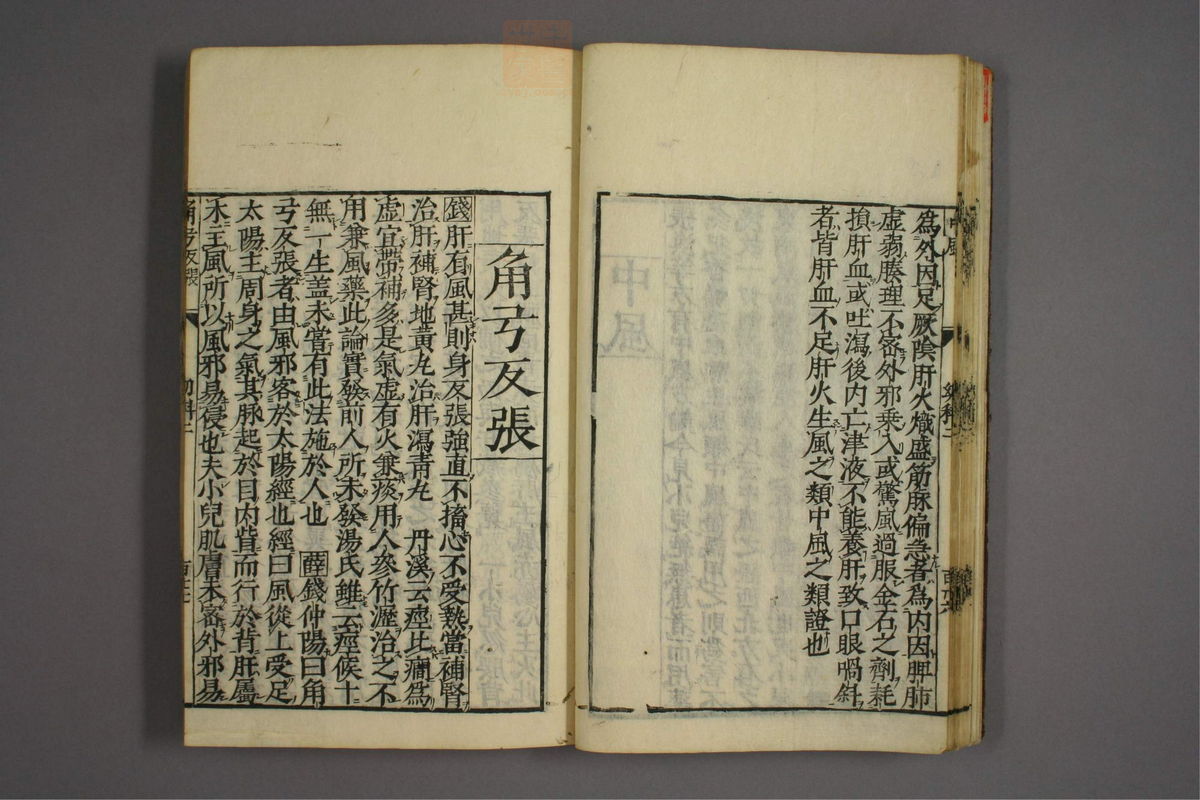 中風
幼科二
為外因足厥陰肝火熾盛筋脉偏急者為内因脾肺
虛弱腠理不密外邪乗入或驚風過服金石之劑耗
損肝血或吐瀉後内亡津液不能養肝致口眼喎斜
者皆肝血不足肝火生風之類中風之類證也
角弓反張
錢肝有風甚則身反張強直不搐心不受熱當補腎
治肝補腎地黃丸治肝瀉青丸 丹溪云痙比癎為
虛宜帶補多是氣虛有火兼痰用人參竹瀝治之不
用兼風藥此論實發前人所未發湯氏雖云痙候十
無一生盖未嘗有此法施於人也 薛錢仲陽曰角
弓反張者由風邪客於太陽經也經曰風從上受足
太陽主周身之氣其脉起於目内眥而行於背肝屬
木主風所以風邪易侵也夫小兒肌膚未密外邪易
角弓反張
幼科二